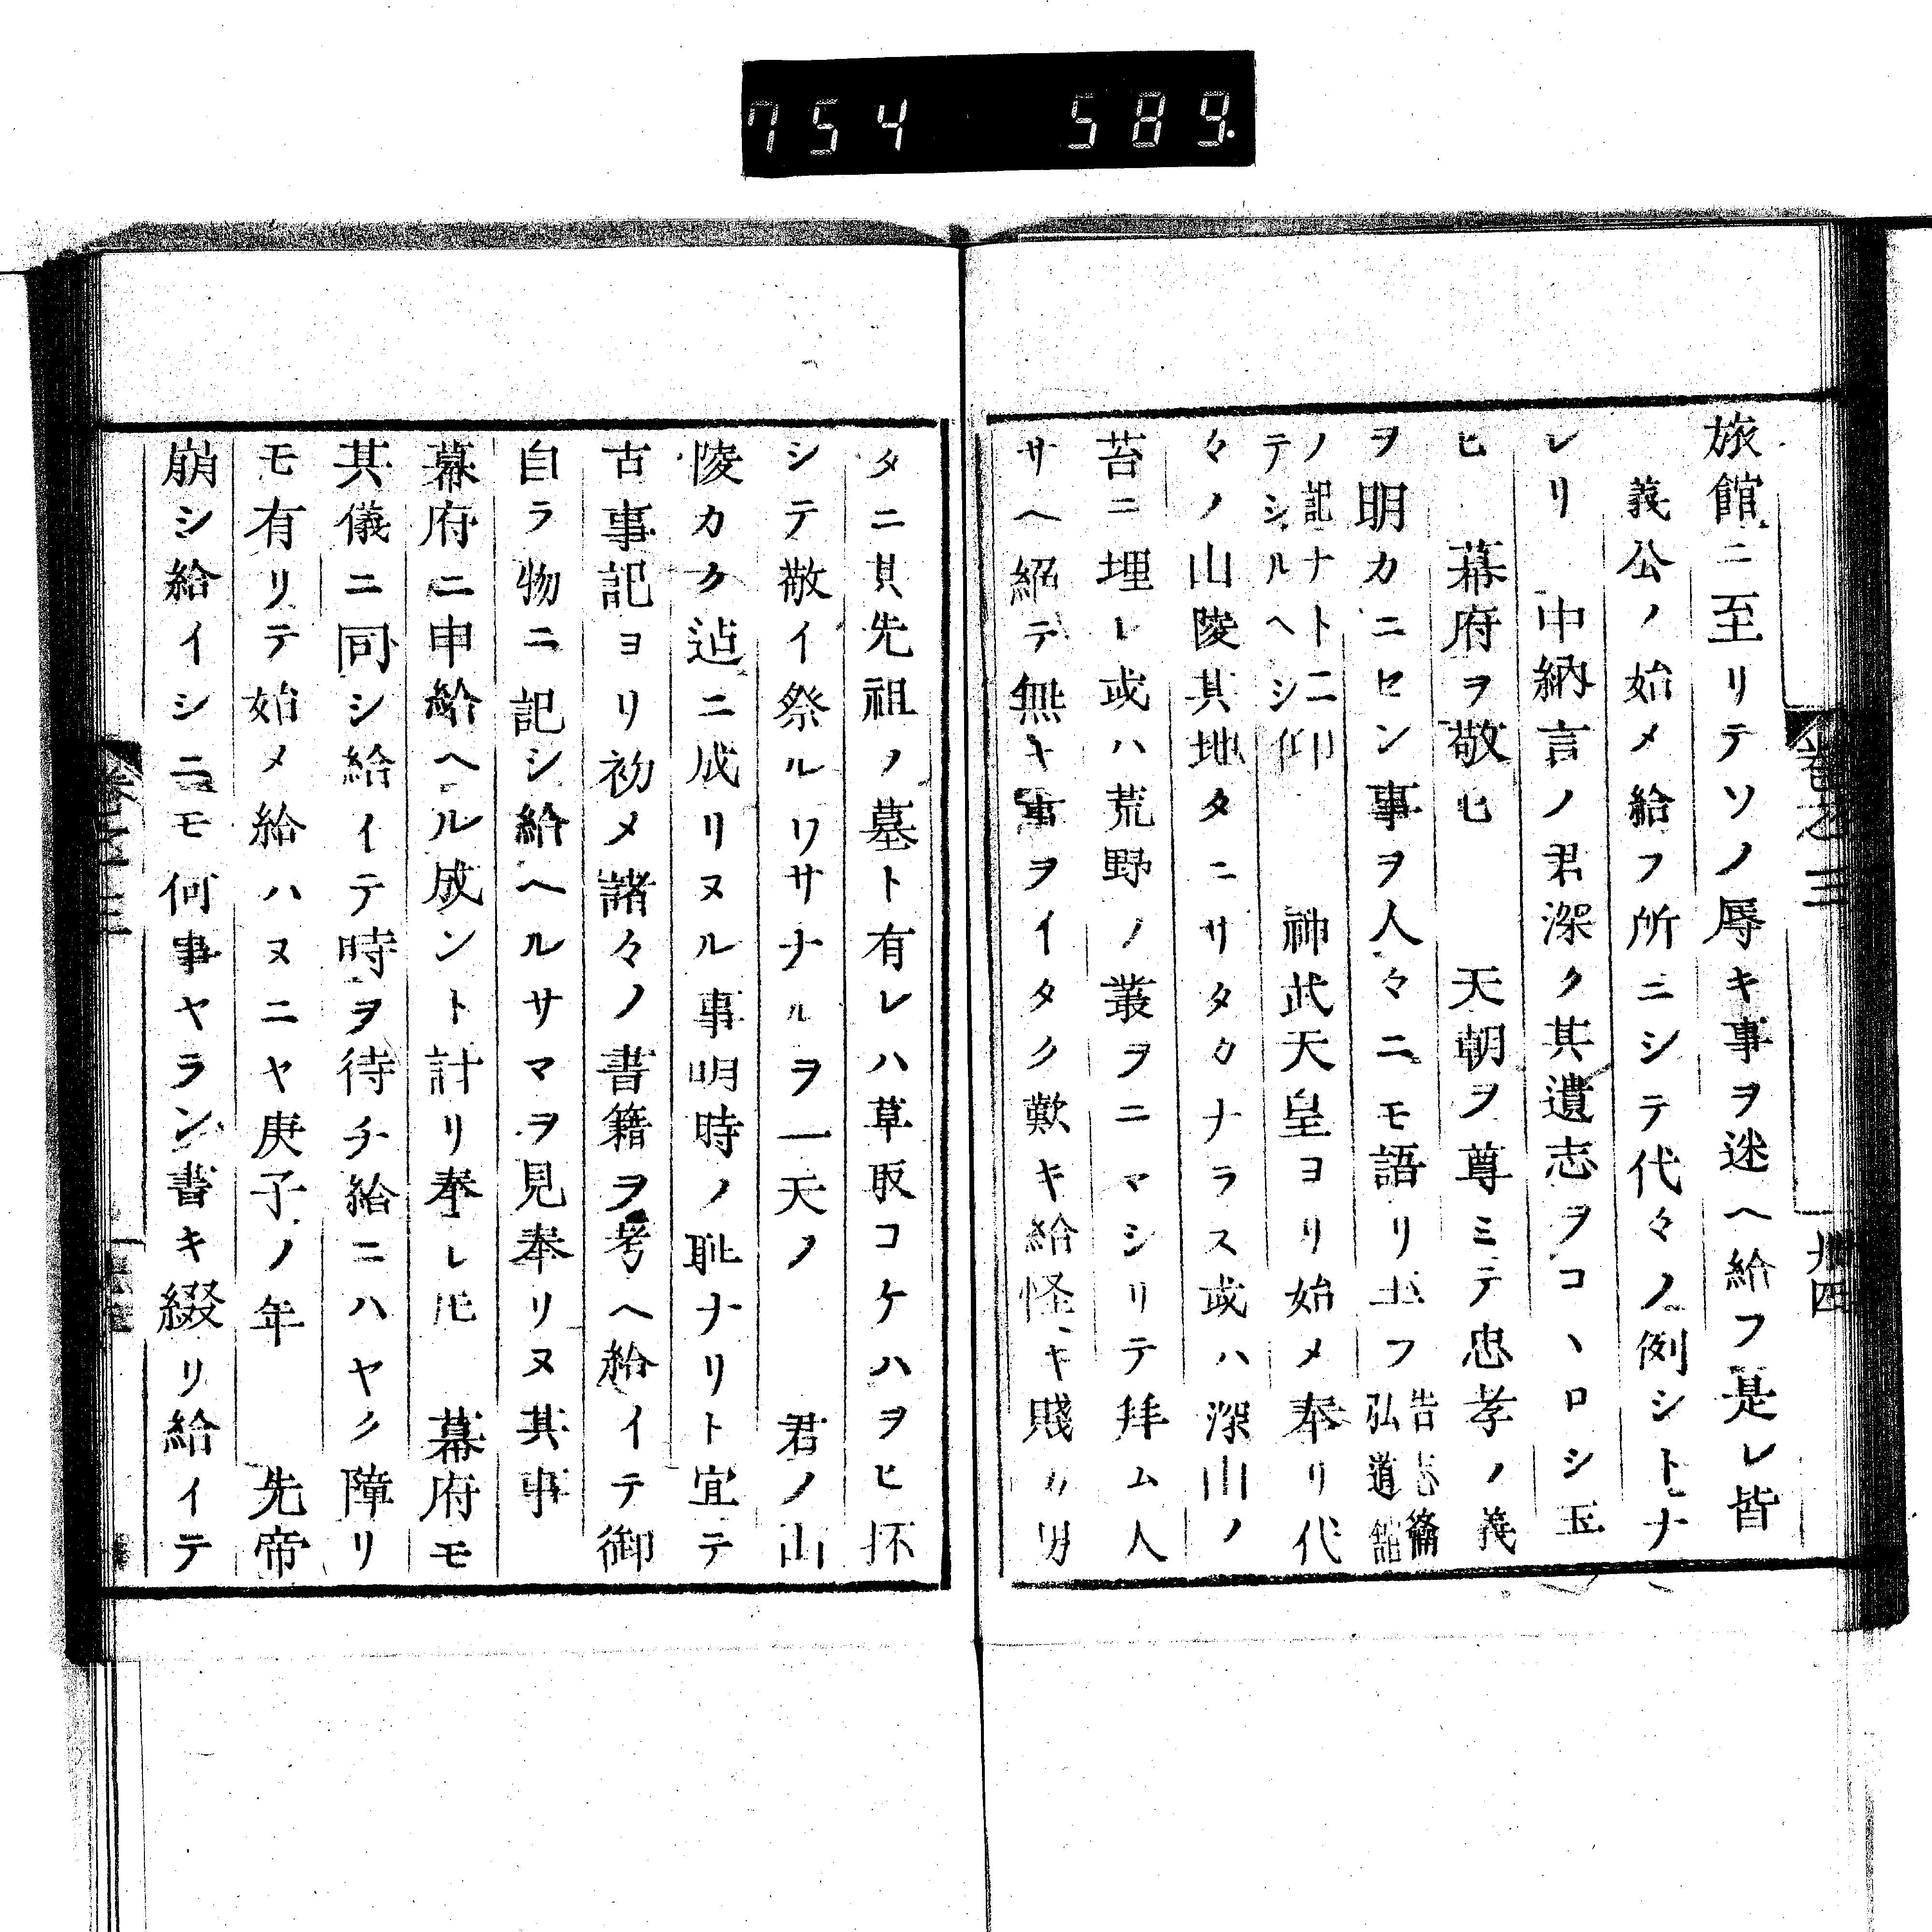 754 589.
旅館ニ至リテソノ辱キ事ヲ述ヘ給フ是レ皆
義公ノ始メ給フ所ニシテ代々ノ例シトナ
レリ 中納言ノ君深ク其遺志ヲコヽロシ玉
ヒ 幕府ヲ敬ヒ 天朝ヲ尊ミテ忠孝ノ義
ヲ明カニセン事ヲ人々ニモ語リ玉フ告志篇弘道館
ノ記ナトニテシルヘシ仰 神武天皇ヨリ始メ奉リ代
々ノ山陵其地タニサタカナラス或ハ深山ノ
苔ニ埋レ或ハ荒野ノ叢ヲニマシリテ拜ム人
サヘ絕テ無キ事ヲイタク歎キ給怪キ賤カ男
タニ其先祖ノ墓ト有レハ草取コケハヲヒ抔
シテ敬イ祭ルワサナルヲ一天ノ 君ノ山
陵カク迠ニ成リヌル事明時ノ耻ナリト宜テ
古事記ヨリ初メ諸々ノ書籍ヲ考ヘ給イテ御
自ラ物ニ記シ給ヘルサマヲ見奉リヌ其事
幕府ニ申給ヘル成ント計リ奉レ𪜈 幕府モ
其儀ニ同シ給イテ時ヲ待チ給ニハヤク障リ
モ有リテ始メ給ハヌニヤ庚子ノ年 先帝
崩シ給イシニモ何事ヤラン書キ綴リ給イテ
卷之三
卅四